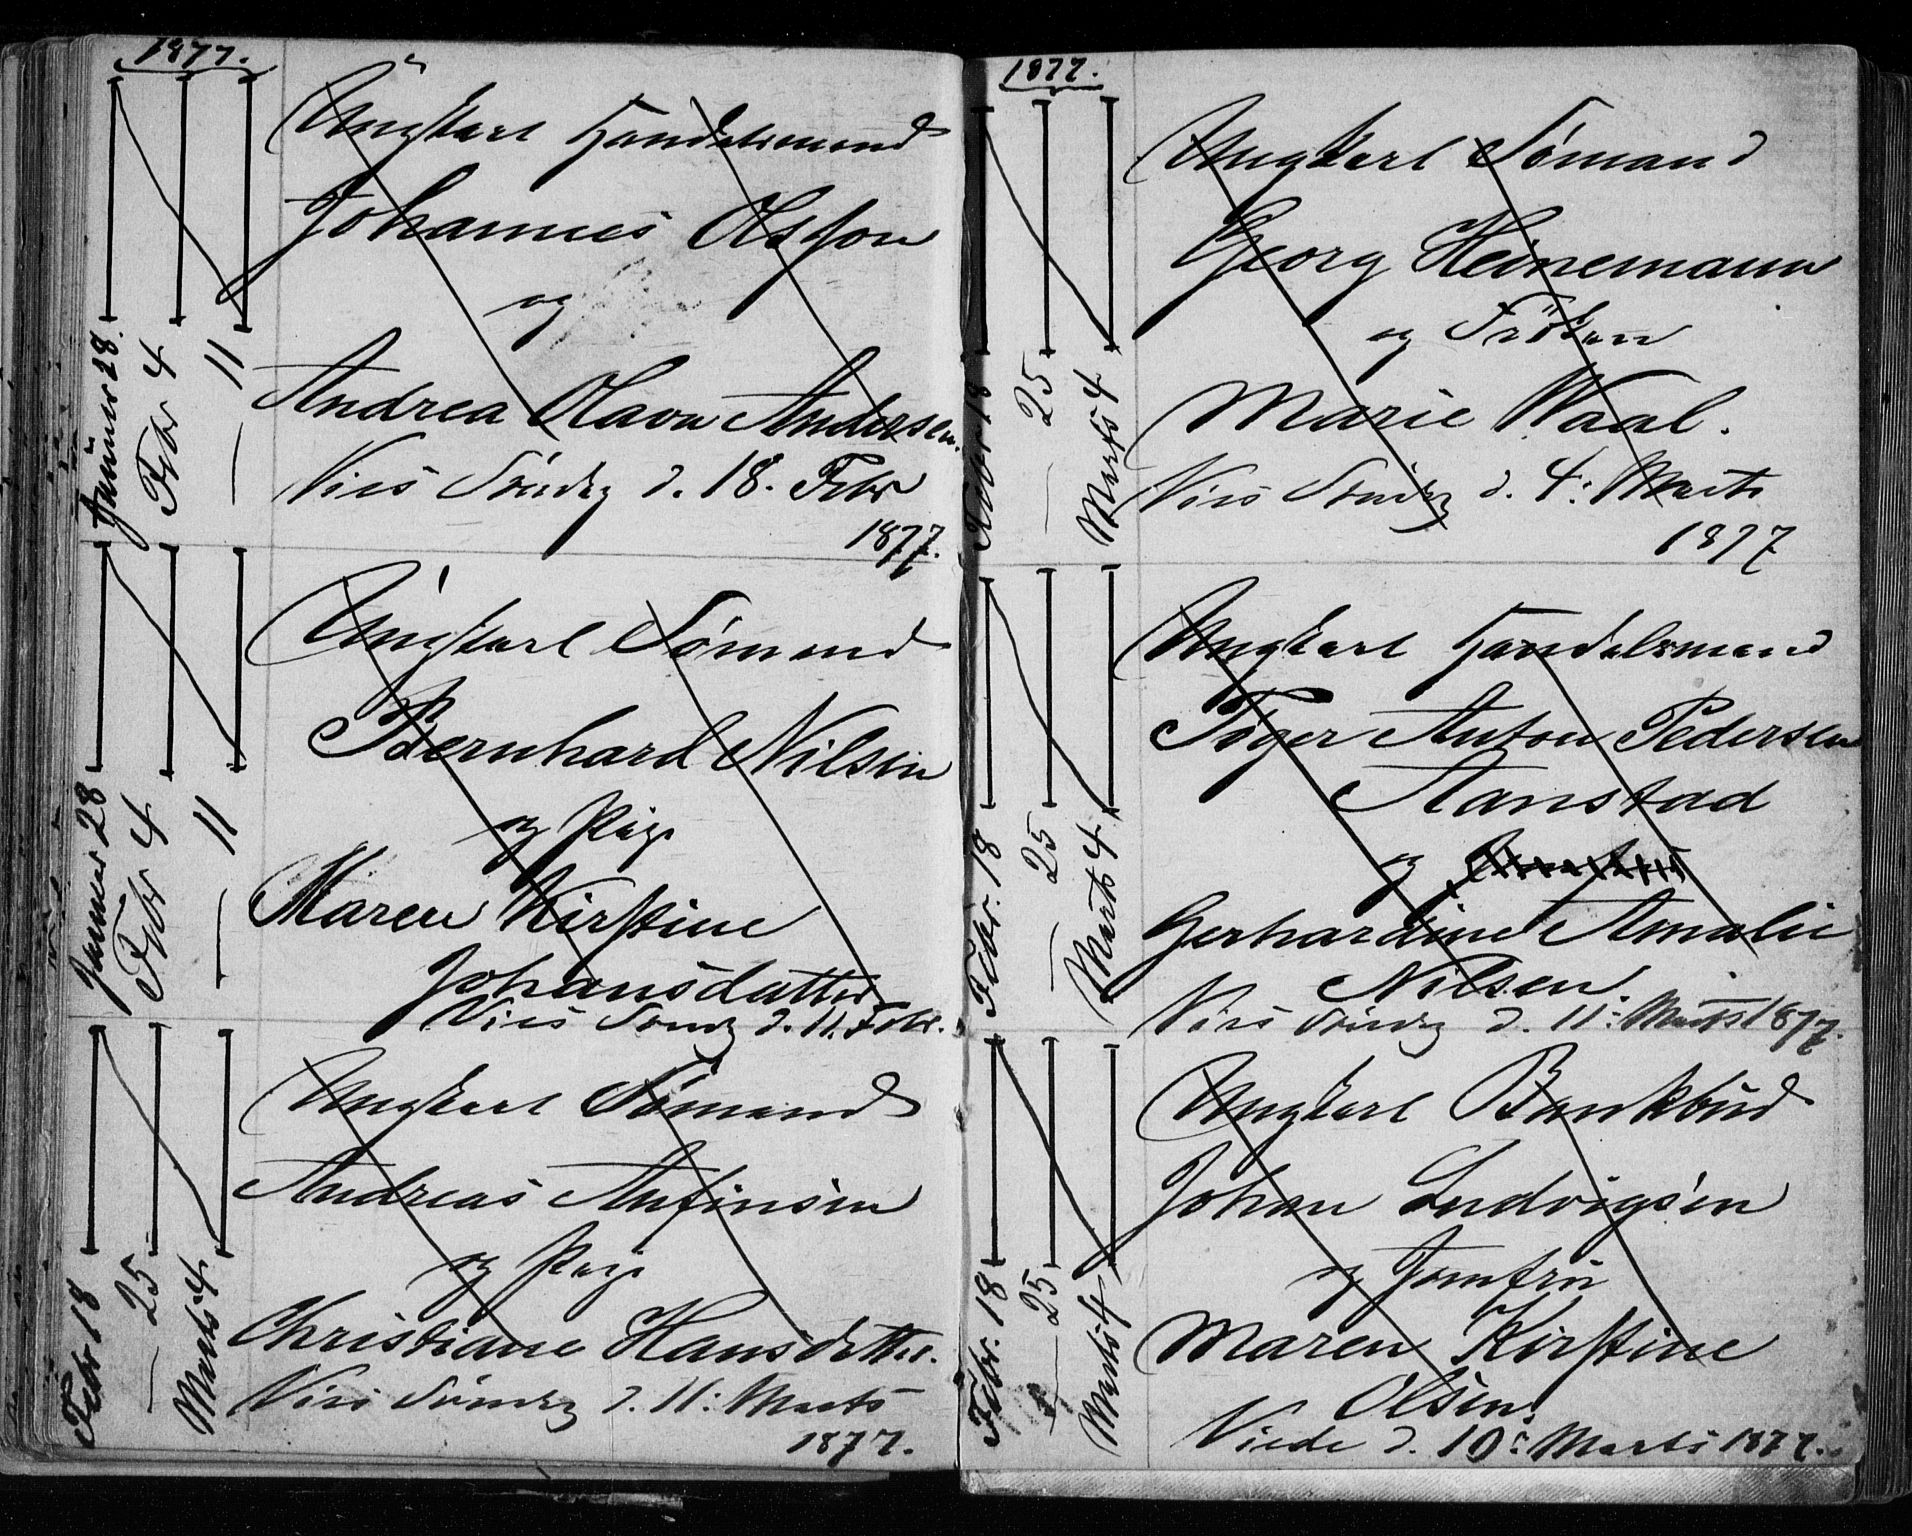 1877.
Januar 28.
Febr 4
— 11
Ungkarl Handelsmand
Johannes Olsson
og
Andrea Olava Andersen.
Vies Søndag d. 18. Febr
1877.
Januar 28
Febr 4
— 11
Ungkarl Sømand
Bernhard Nilsen
og Pige
Maren Kirstine
Johansdatter
Vies Sønd d. 11. Febr.
Febr 18
— 25
Marts 4
Ungkarl Sømand
Andreas Anfinsen
og Pige
Christiane Hansdatter.
Vies Søndag d. 11: Marts
1877.
1877.
Febr 18
— 25
Marts 4
Ungkarl Sømand
Georg Heinemann
og Frøken
Marie Waal.
Vies Søndag d. 4: Marts
1877
Febr. 18
— 25
Marts 4
Ungkarl Handelsmand
Tøger Anton Pedersen
Aanstad
og
Gerhardine Amalie
Nilsen.
Vies Søndag d. 11: Marts 1877.
Febr. 18
— 25
Marts 4
Ungkarl Bankbud
Johan Ludvigsen
og Jomfru
Maren Kirstine
Olsen.
Viede d. 10: Marts 1877.